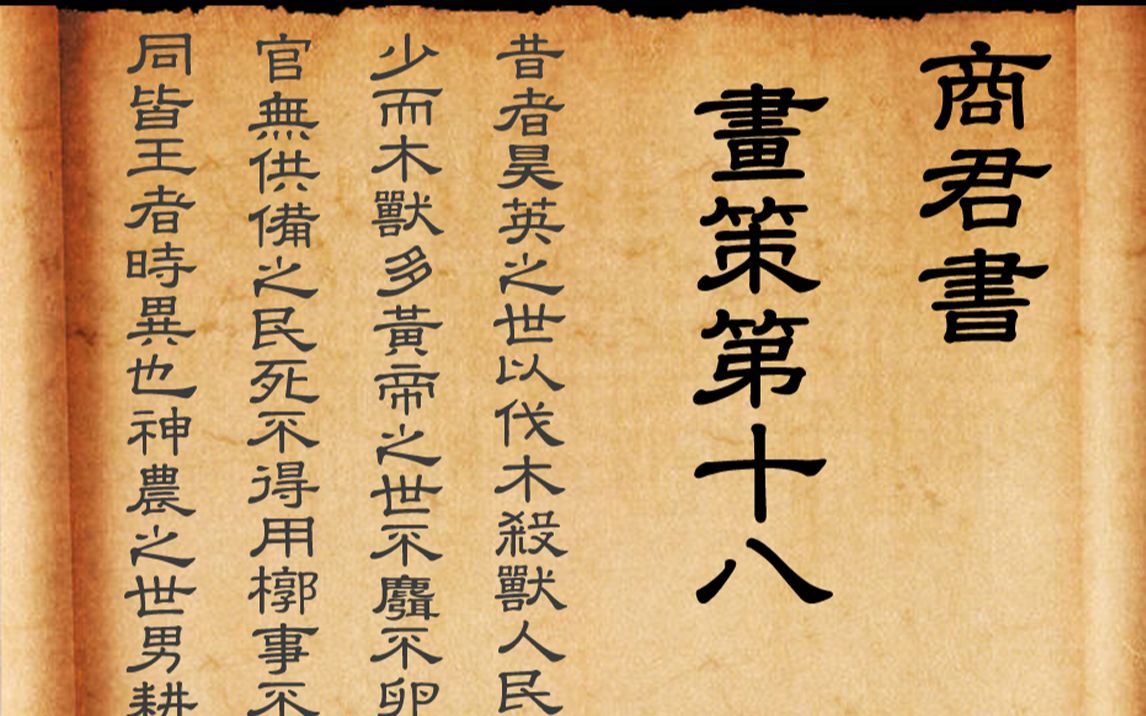 商君書
畫策第十八
昔者昊英之世以伐木殺獸人民
少而木獸多黃帝之世不麛不卵
官無供備之民死不得用槨事不
同皆王者時異也神農之世男耕